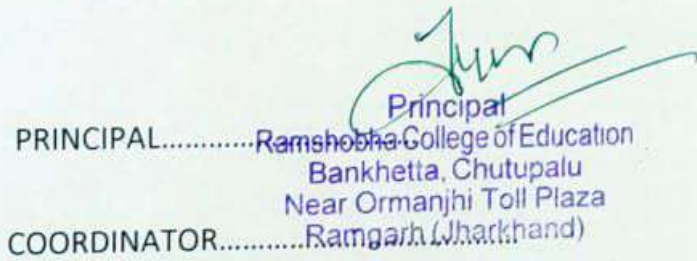 Principal
PRINCIPAL..............Ramshobha College of Education
Bankhetta, Chutupalu
Near Ormanjhi Toll Plaza
COORDINATOR..............Ramgarh (Jharkhand)